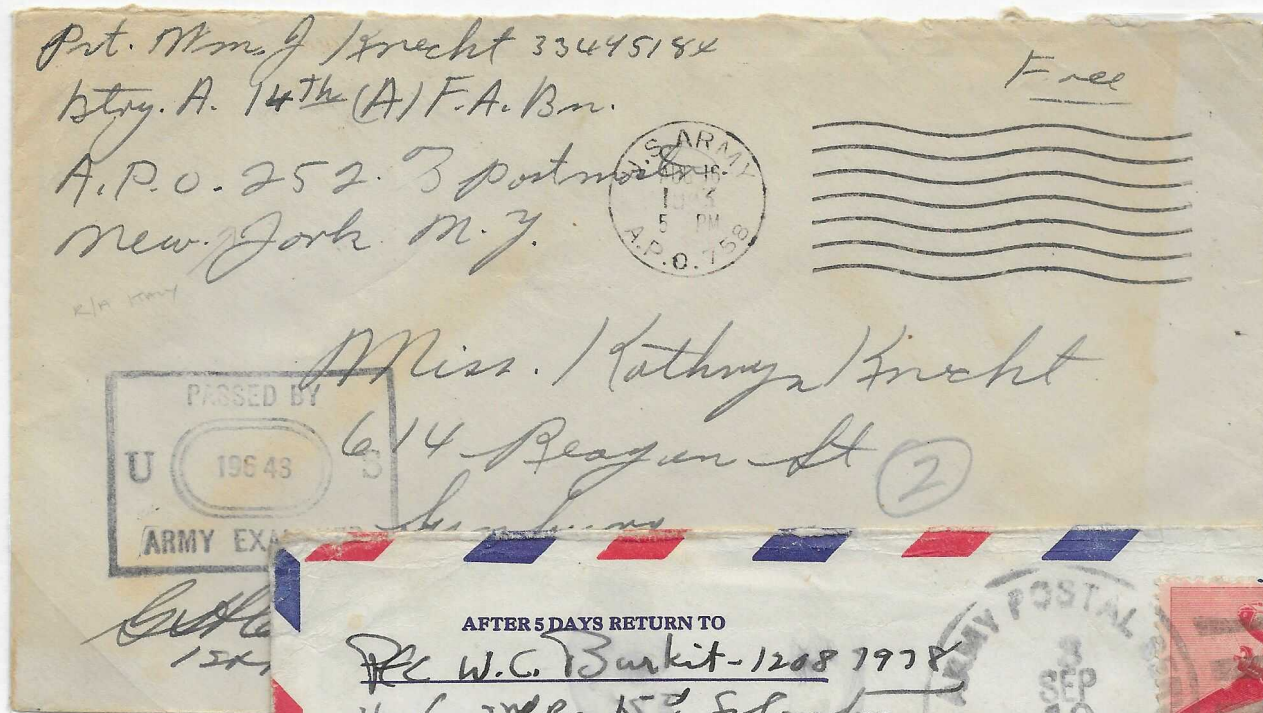 Pvt. Wm. J Knecht 33495184
Btry. A. 14th (A) F.A. Bn.
A.P.O. 252. % postmaster.
New. York N.Y.
Free
U.S. ARMY
1943
5 PM
A.P.O. 758
R/A ITALY
Miss. Kathryn Knecht
614 Reagan St
2
PASSED BY
U 19648 S
ARMY EXA
AFTER 5 DAYS RETURN TO
Pfc W.C. Burkit - 12087978
ARMY POSTAL
3
SEP